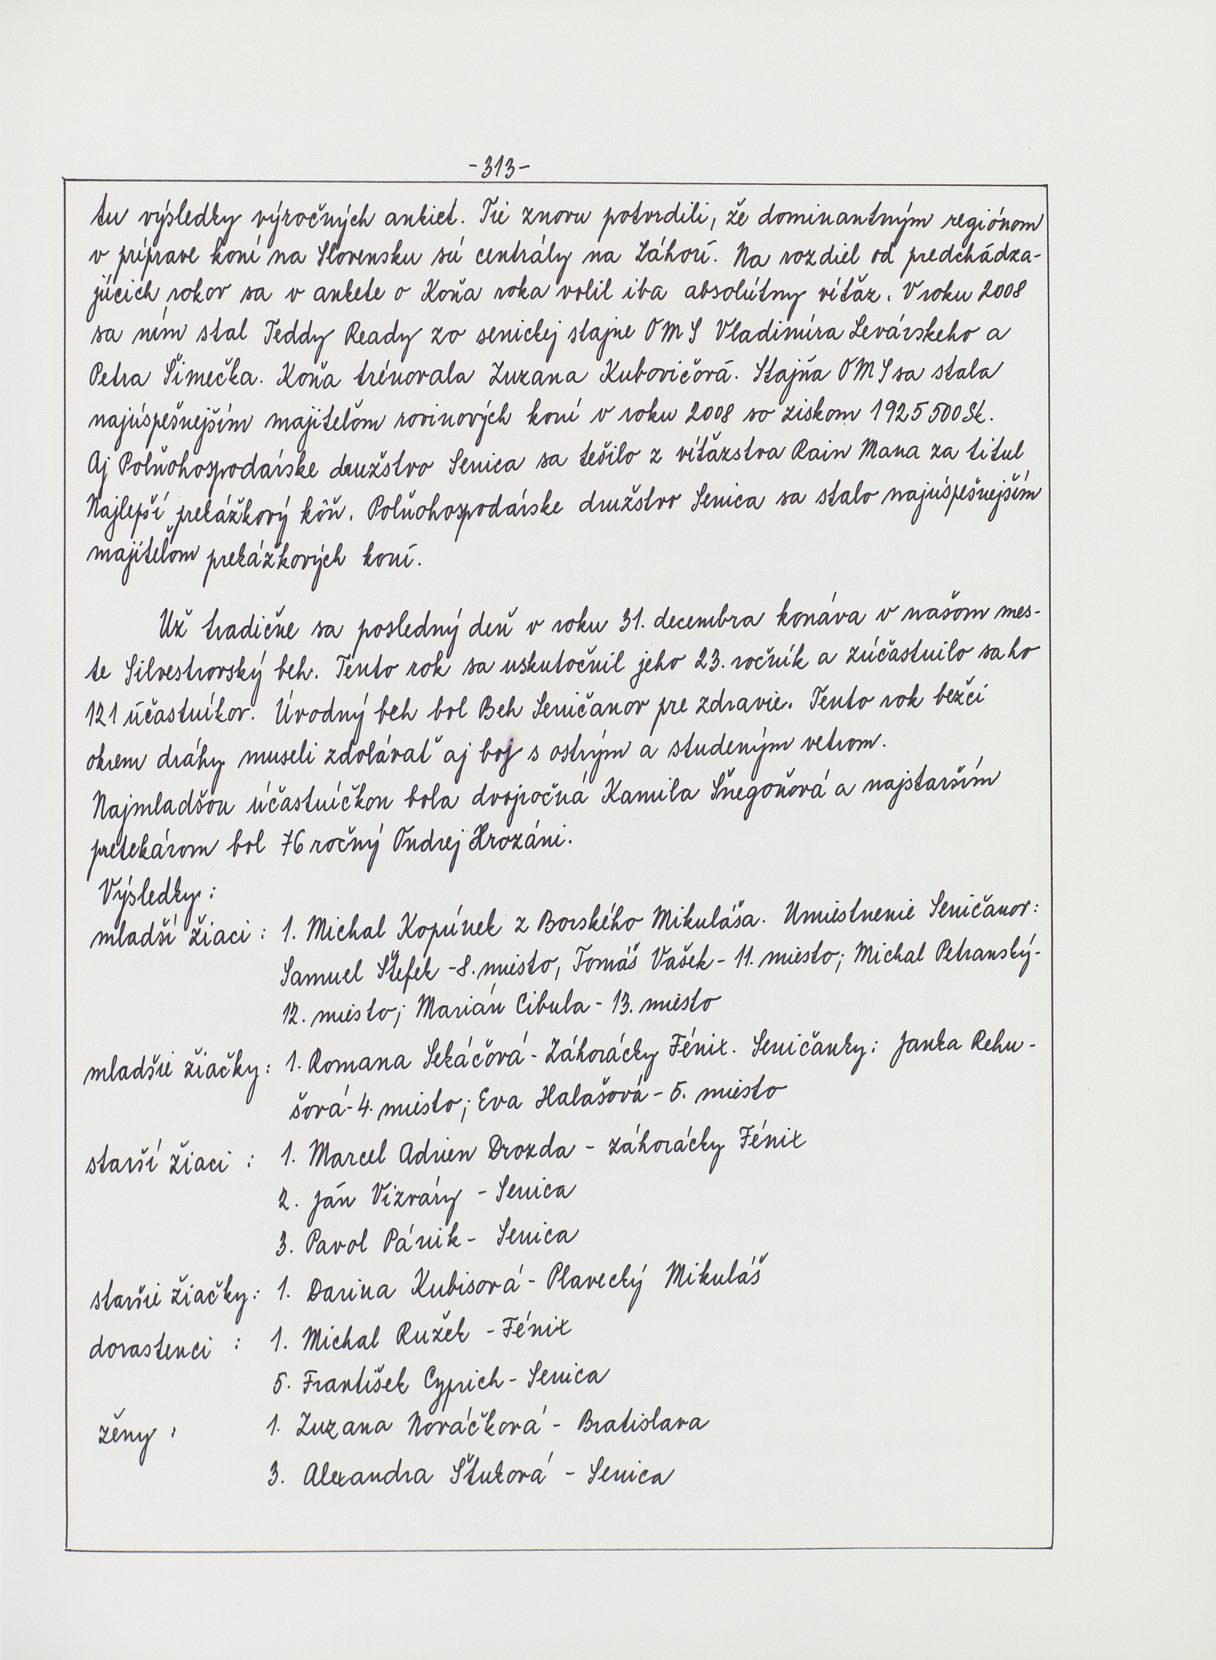 -313-
tu výsledky výročných ankiet. Tie znovu potvrdili, že dominantným regiónom
v príprave koní na Slovensku sú centrály na Záhorí. Na rozdiel od predchádza-
júcich rokov sa v ankete o Koňa roka volil iba absolútny víťaz. V roku 2008
sa ním stal Teddy Ready zo senickej stajne OMS Vladimíra Levárskeho a
Petra Šimečka. Koňa trénovala Zuzana Kubovičová. Stajňa OMS sa stala
najúspešnejším majiteľom rovinových koní v roku 2008 so ziskom 1925500 Sk.
Aj Poľnohospodárske družstvo Senica sa tešilo z víťazstva Rain Mana za titul
Najlepší prekážkový kôň. Poľnohospodárske družstvo Senica sa stalo najúspešnejším
majiteľom prekážkových koní.
Už tradične sa posledný deň v roku 31. decembra konáva v našom mes-
te Silvestrovský beh. Tento rok sa uskutočnil jeho 23. ročník a zúčastnilo sa ho
121 účastníkov. Úvodný beh bol Beh Seničanov pre zdravie. Tento rok bežci
okrem dráhy museli zdolávať aj boj s ostrým a studeným vetrom.
Najmladšou účastníčkou bola dvojročná Kamila Šnegoňová a najstarším
pretekárom bol 76 ročný Ondrej Hrozáni.
Výsledky:
mladší žiaci : 1. Michal Kopúnek z Borského Mikuláša. Umiestnenie Seničanov:
Samuel Štefek - 8. miesto, Tomáš Vašek - 11. miesto; Michal Petranský-
12. miesto; Marián Cibula - 13. miesto
mladšie žiačky: 1. Romana Sekáčová - Záhorácky Fénix. Seničanky: Janka Rehu-
šová - 4. miesto; Eva Halašová - 5. miesto
starší žiaci : 1. Marcel Adrien Drozda - záhorácky Fénix
2. Ján Vizváry - Senica
3. Pavol Pánik - Senica
staršie žiačky: 1. Darina Kubisová - Plavecký Mikuláš
dorastenci : 1. Michal Ružek - Fénix
5. František Cyprich - Senica
ženy : 1. Zuzana Nováčková - Bratislava
3. Alexandra Štuková - Senica